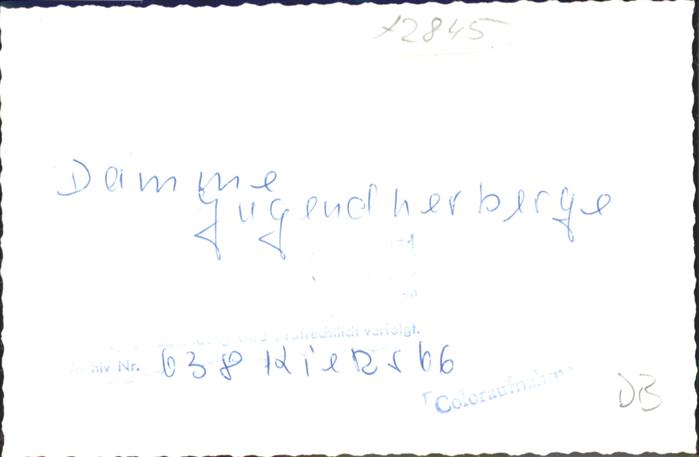 12845
Damme
Jugendherberge
strafrechtlich verfolgt.
Archiv Nr. 638
Coloraufnahme
DB